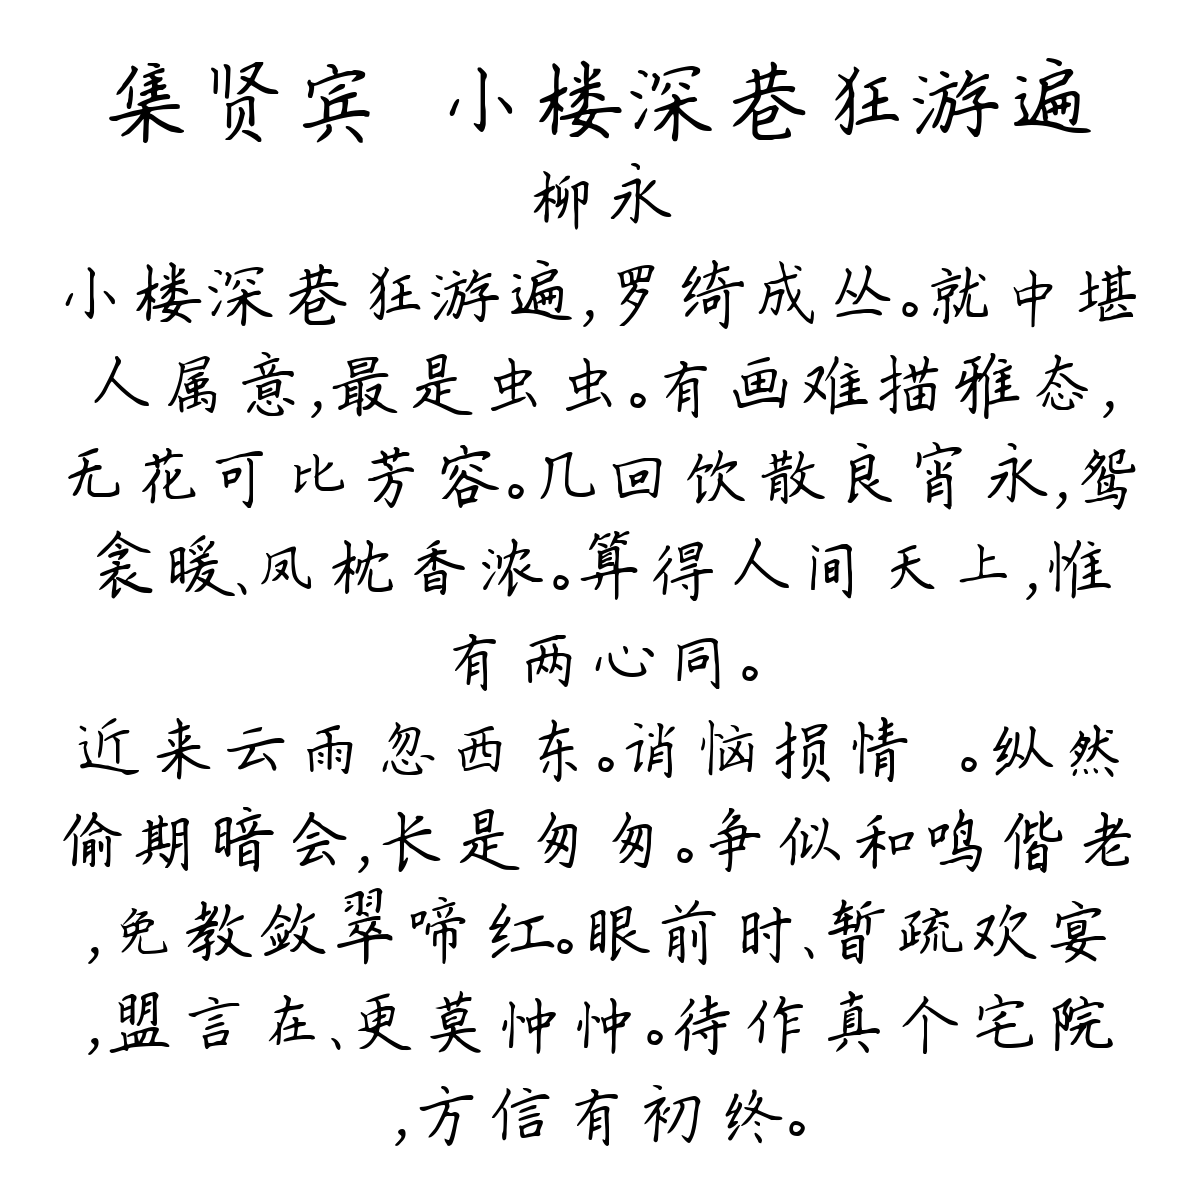 集贤宾 小楼深巷狂游遍
柳永
小楼深巷狂游遍,罗绮成丛。就中堪
人属意,最是虫虫。有画难描雅态,
无花可比芳容。几回饮散良宵永,鸳
衾暖、凤枕香浓。算得人间天上,惟
有两心同。
近来云雨忽西东。诮恼损情 。纵然
偷期暗会,长是匆匆。争似和鸣偕老
,免教敛翠啼红。眼前时、暂疏欢宴
,盟言在、更莫忡忡。待作真个宅院
,方信有初终。